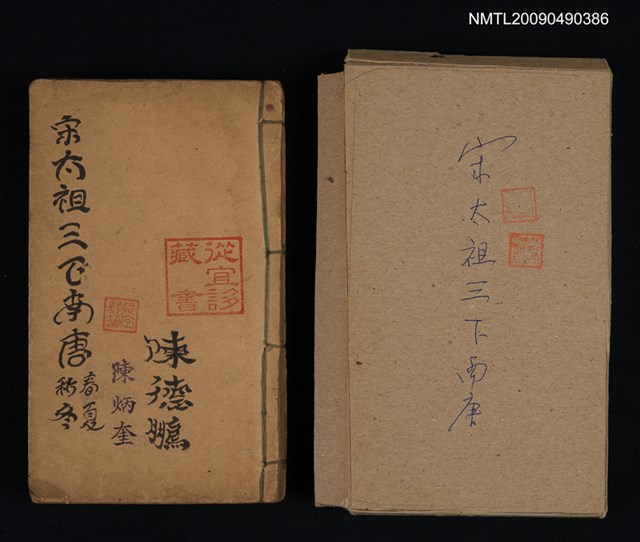 NMTL20090490386
宋太祖三下南唐
春夏
秋冬
從宜誃
藏書
陳炳奎
陳德鵬
宋太祖三下南唐